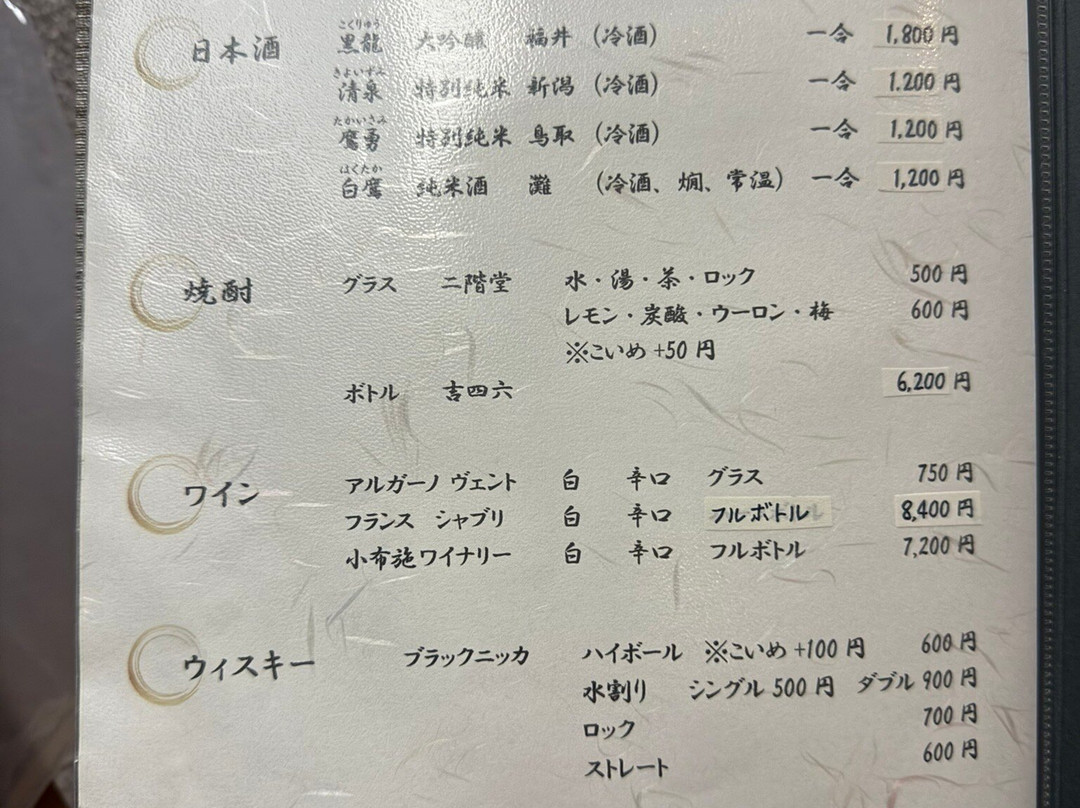 日本酒 黒龍 こくりゅう 大吟醸 福井 (冷酒) 一合 1,800円
清泉 きよいずみ 特別純米 新潟 (冷酒) 一合 1.200円
鷹勇 たかいさみ 特別純米 鳥取 (冷酒) 一合 1,200円
白鷹 はくたか 純米酒 灘 (冷酒、燗、常温) 一合 1,200円
焼酎 グラス 二階堂 水・湯・茶・ロック 500円
レモン・炭酸・ウーロン・梅 600円
※こいめ +50円
ボトル 吉四六 6,200円
ワイン アルガーノ ヴェント 白 辛口 グラス 750円
フランス シャブリ 白 辛口 フルボトル 8,400円
小布施ワイナリー 白 辛口 フルボトル 7,200円
ウィスキー ブラックニッカ ハイボール ※こいめ +100円 600円
水割り シングル 500円 ダブル 900円
ロック 700円
ストレート 600円